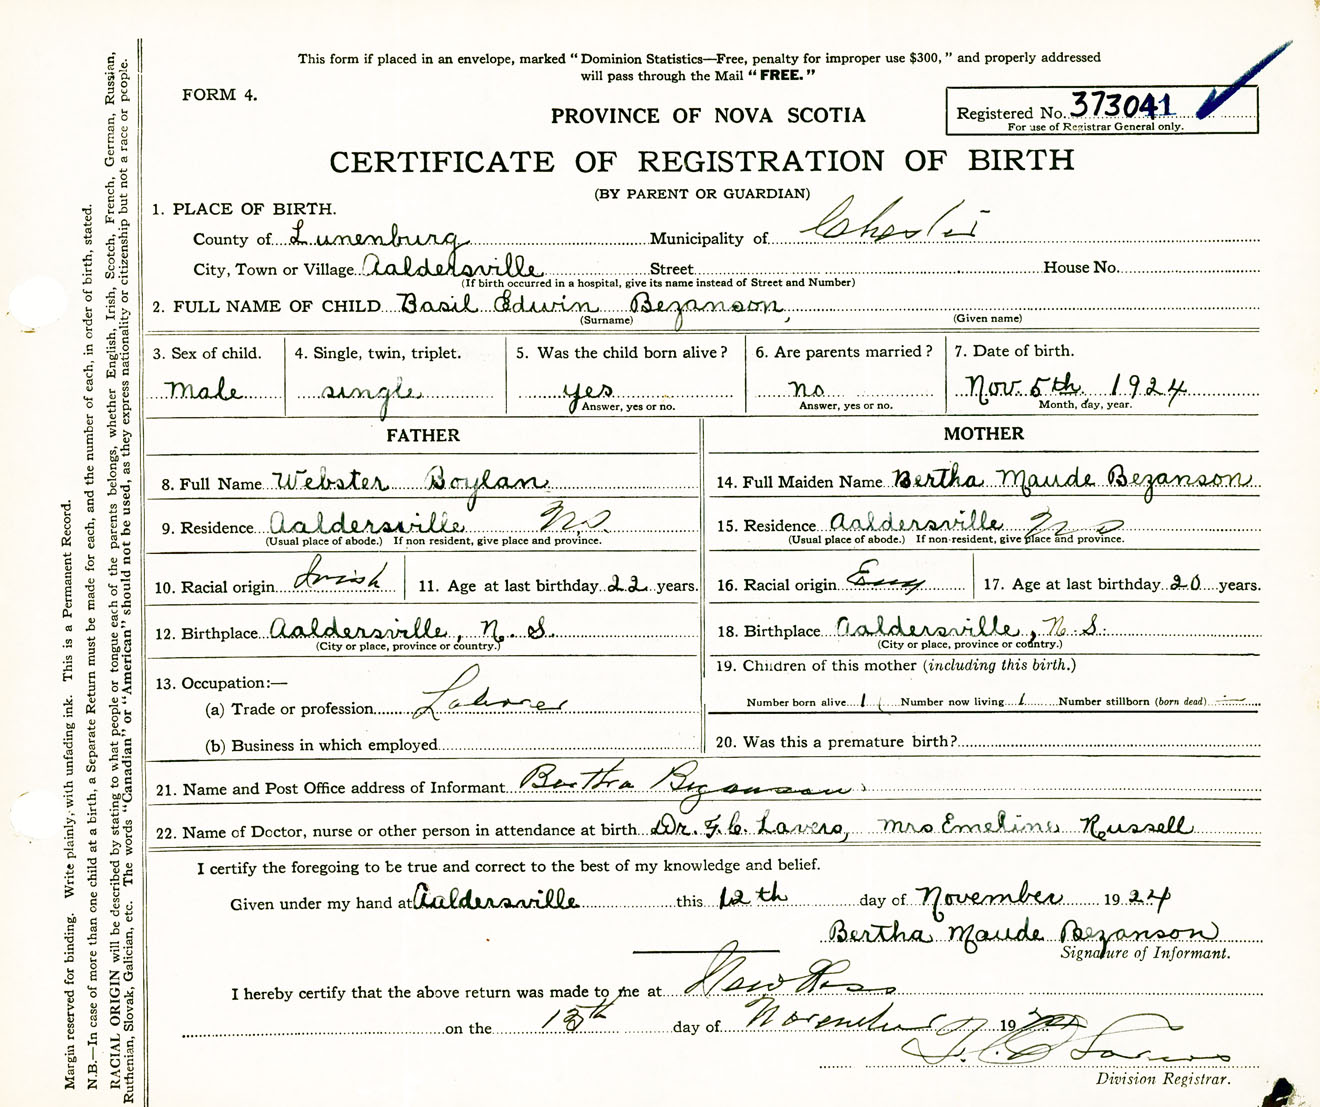 This form if placed in an envelope, marked “Dominion Statistics—Free, penalty for improper use $300,” and properly addressed
will pass through the Mail “FREE.”
FORM 4.
PROVINCE OF NOVA SCOTIA
Registered No. 373041
For use of Registrar General only.
CERTIFICATE OF REGISTRATION OF BIRTH
(BY PARENT OR GUARDIAN)
1. PLACE OF BIRTH.
County of Lunenburg Municipality of Chester
City, Town or Village Aaldersville Street House No.
(If birth occurred in a hospital, give its name instead of Street and Number)
2. FULL NAME OF CHILD Basil Edwin Bezanson,
(Surname) (Given name)
3. Sex of child. 4. Single, twin, triplet. 5. Was the child born alive? 6. Are parents married? 7. Date of birth.
Male single yes no Nov. 5th. 1924
Answer, yes or no. Answer, yes or no. Month, day, year.
FATHER MOTHER
8. Full Name Webster Boylan 14. Full Maiden Name Bertha Maude Bezanson
9. Residence Aaldersville N S 15. Residence Aaldersville N S
(Usual place of abode.) If non resident, give place and province. (Usual place of abode.) If non-resident, give place and province.
10. Racial origin Irish 11. Age at last birthday 22 years. 16. Racial origin Eng 17. Age at last birthday 20 years.
12. Birthplace Aaldersville, N. S. 18. Birthplace Aaldersville, N. S.
(City or place, province or country.) (City or place, province or country.)
13. Occupation:— 19. Children of this mother (including this birth.)
(a) Trade or profession Laborer Number born alive 1 Number now living 1 Number stillborn (born dead) —
(b) Business in which employed 20. Was this a premature birth?
21. Name and Post Office address of Informant Bertha Bezanson
22. Name of Doctor, nurse or other person in attendance at birth Dr. F. C. Lavers, Mrs Emeline Russell
I certify the foregoing to be true and correct to the best of my knowledge and belief.
Given under my hand at Aaldersville this 12th day of November 1924
Bertha Maude Bezanson
Signature of Informant.
I hereby certify that the above return was made to me at New Ross
on the 13th day of November 1924
F. C. Lavers
Division Registrar.
Margin reserved for binding. Write plainly, with unfading ink. This is a Permanent Record.
N.B.—In case of more than one child at a birth, a Separate Return must be made for each, and the number of each, in order of birth, stated.
RACIAL ORIGIN will be described by stating to what people or tongue each of the parents belongs, whether English, Irish, Scotch, French, German, Russian,
Ruthenian, Slovak, Galician, etc. The words “Canadian” or “American” should not be used, as they express nationality or citizenship but not a race or people.